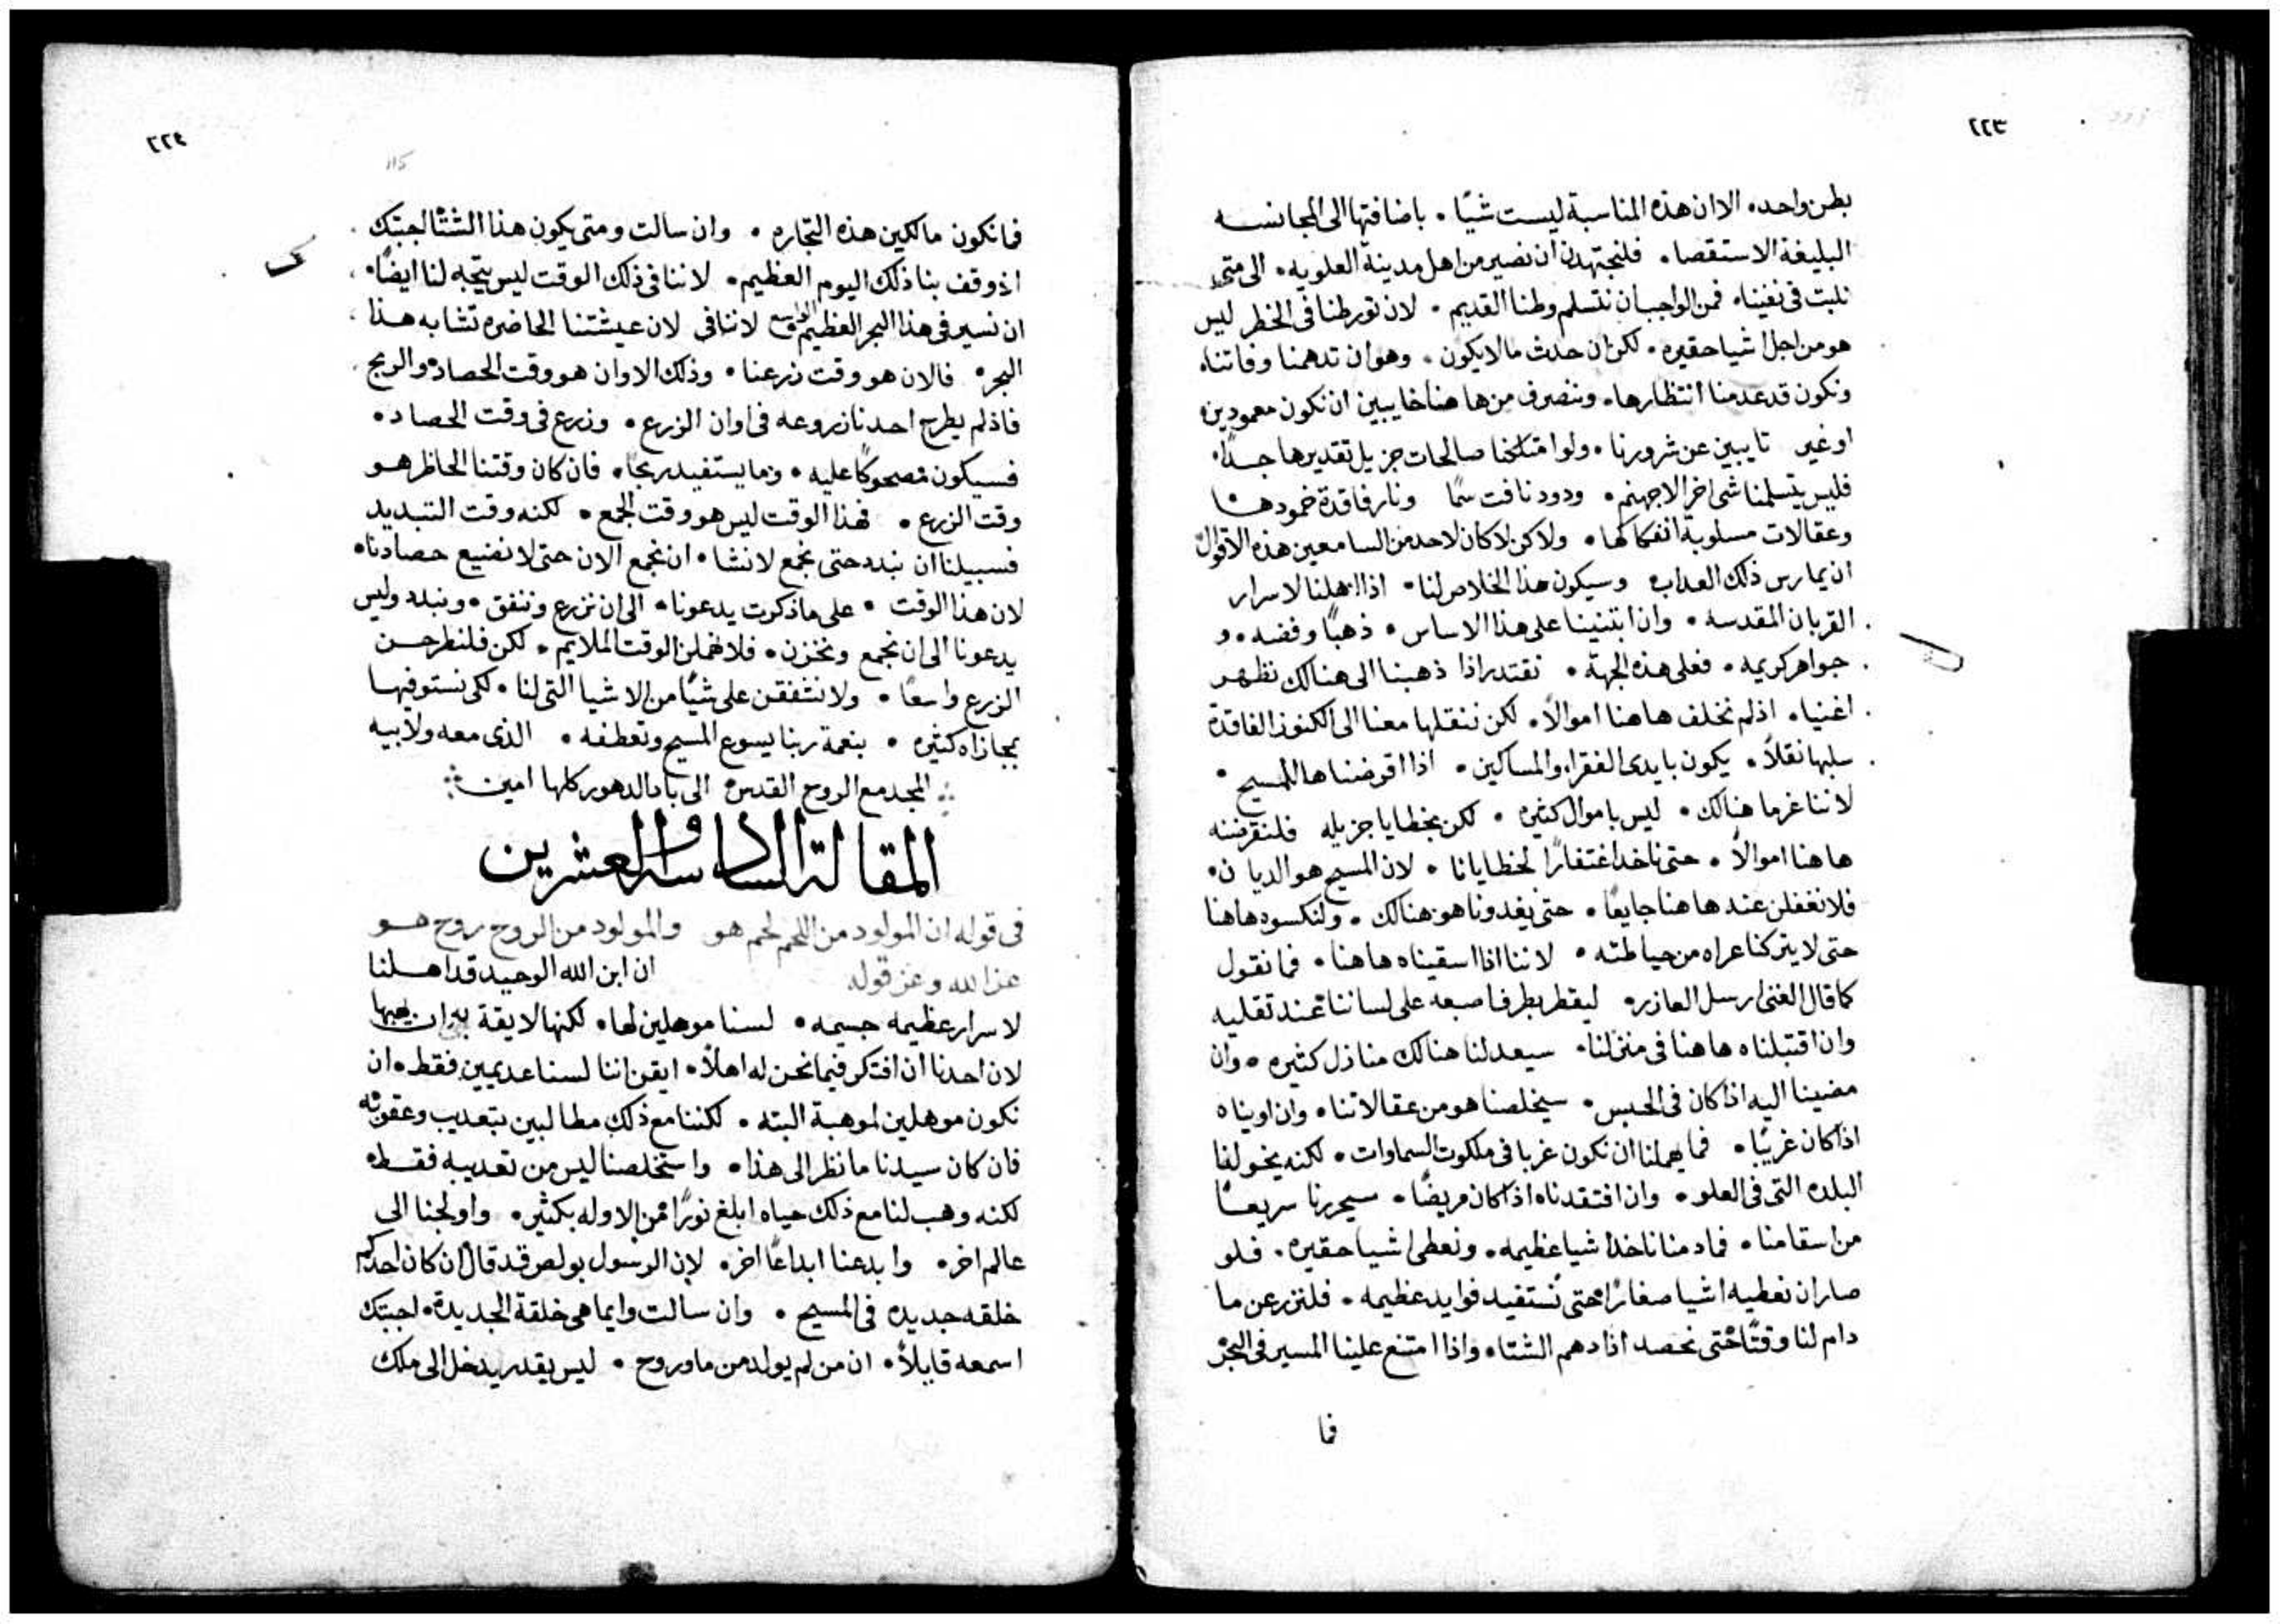 ٢٢٣
بطن واحد. الا ان هذه المناسبة ليست شيًا. باضافتها الى المجانسه
البليغة الاستقصا. فلنجتهدن ان نصير من اهل مدينة العلويه. الى متى
نلبت في نفينا. فمن الواجب ان نتسلم وطنا القديم. لان تورطنا في الخطر ليس
هو من اجل اشيا حقيره. لكن ان حدث ما لا يكون. وهو ان تدهمنا وفاتنا.
ونكون قد عدمنا انتظارها. وننصرف من ها هنا خايبين ان نكون معمودين.
او غير تايبين عن شرورنا. ولو امتلكنا صالحات جزيل تقديرها جدًا.
فليس يتسلمنا شي اخر الا جهنم. ودود نافت سمًا ونار فاقدة خمودها
وعقالات مسلوبة انفكاكها. ولا كن لا كان لاحد من السامعين هذه الاقوال
ان يمارس ذلك العداب وسيكون هذا الخلاص لنا. اذا اهلنا لاسرار
القربان المقدسه. وان ابتنينا على هذا الاساس. ذهبًا وفضه. و
جواهر كريمه. فعلى هذه الجهة. نقتدر اذا ذهبنا الى هنالك نظهر
اغنيا. اذ لم نخلف هاهنا اموالاً. لكن ننقلها معنا الى الكنوز الفاقدة
سلبها نقلاً. يكون بايدى الفقرا والمساكين. اذا اقرضناها للمسيح.
لاننا غرما هنالك. ليس باموال كثيره. لكن بخطايا جزيله فلنقرضنه
هاهنا اموالاً. حتى ناخد اغتفارًا لخطايانا. لان المسيح هو الديان.
فلا نغفلن عند هاهنا جايعًا. حتى يغدونا هو هنالك. ولنكسوه هاهنا
حتى لا يتركنا عراه من حياطته. لاننا اذا اسقيناه هاهنا. فما نقول
كما قال الغنى ارسل العازر. ليقطر بطرف اصبعه على لساننا عند تقليه
وان اقتبلناه هاهنا في منزلنا. سيعد لنا هنالك منازل كثيره. وان
مضينا اليه اذا كان في الحبس. سيخلصنا هو من عقالاتنا. وان اويناه
اذا كان غريبًا. فما يهملنا ان نكون غربا في ملكوت السماوات. لكنه يخولنا
البلده التى في العلو. وان افتقدناه اذا كان مريضًا. سيحررنا سريعًا
من اسقامنا. فما دمنا ناخد اشيا عظيمه. ونعطى اشيا حقيره. فلو
صار ان نعطيه اشيا صغارًا حتى نستفيد فوايد عظيمه. فلنزرعن ما
دام لنا وقتًا حتى نحصد اذا دهم الشتا. واذا امتنع علينا المسير في البحر
فما
٢٢٤
115
فما نكون مالكين هذه التجاره. وان سالت ومتى يكون هذا الشتا اجبتك
اذ وقف بنا ذلك اليوم العظيم. لاننا في ذلك الوقت ليس يتجه لنا ايضًا.
ان نسير في هذا البحر العظيم الواسع لاننا في لان عيشتنا الحاضره تشابه هذا
البحر. فالان هو وقت زرعنا. وذلك الاوان هو وقت الحصاد والربح
فاذ لم يطرح احدنا زروعه في اوان الزرع. وزرع في وقت الحصاد.
فسيكون مضحوكًا عليه. وما يستفيد ربحًا. فان كان وقتنا الحاظر هو
وقت الزرع. فهذا الوقت ليس هو وقت الجمع. لكنه وقت التبديد
فسبيلنا ان نبدد حتى نجمع لا نشا. ان نجمع الان حتى لا نضيع حصادنا.
لان هذا الوقت. على ما ذكرت يدعونا. الى ان نزرع وننفق. ونبدد وليس
يدعونا الى ان نجمع ونخزن. فلا نهملن الوقت الملايم. لكن فلنطرحن
الزرع واسعًا. ولا نشفقن على شيًا من الاشيا التى لنا. لكى نستوفيها
بمجازاه كثيره. بنعمة ربنا يسوع المسيح وتعطفه. الذى معه ولابيه
المجد مع الروح القدس الى اباد الدهور كلها امين
المقالة السادسة والعشرين
في قوله ان المولود من اللحم لحم هو والمولود من الروح روح هو
عز الله وعز قوله ان ابن الله الوحيد قد اهلنا
لاسرار عظيمه جسيمه. لسنا موهلين لها. لكنها لايقة به ان يهبها
لان احدنا ان افتكر فيما نحن له اهلاً. ايقن اننا لسنا عديمين فقط. ان
نكون موهلين لموهبة البته. لكننا مع ذلك مطالبين بتعديب وعقوبه
فان كان سيدنا ما نظر الى هذا. واستخلصنا ليس من تعديبه فقط.
لكنه وهب لنا مع ذلك حياه ابلغ نورًا من الاوله بكثير. واولجنا الى
عالم اخر. وابدعنا ابداعًا اخر. لان الرسول بولص قد قال ان كان احدكم
خلقه جديده في المسيح. وان سالت وايما هى خلقة الجديدة. اجبتك
اسمعه قايلاً. ان من لم يولد من ما وروح. ليس يقدر يدخل الى ملك